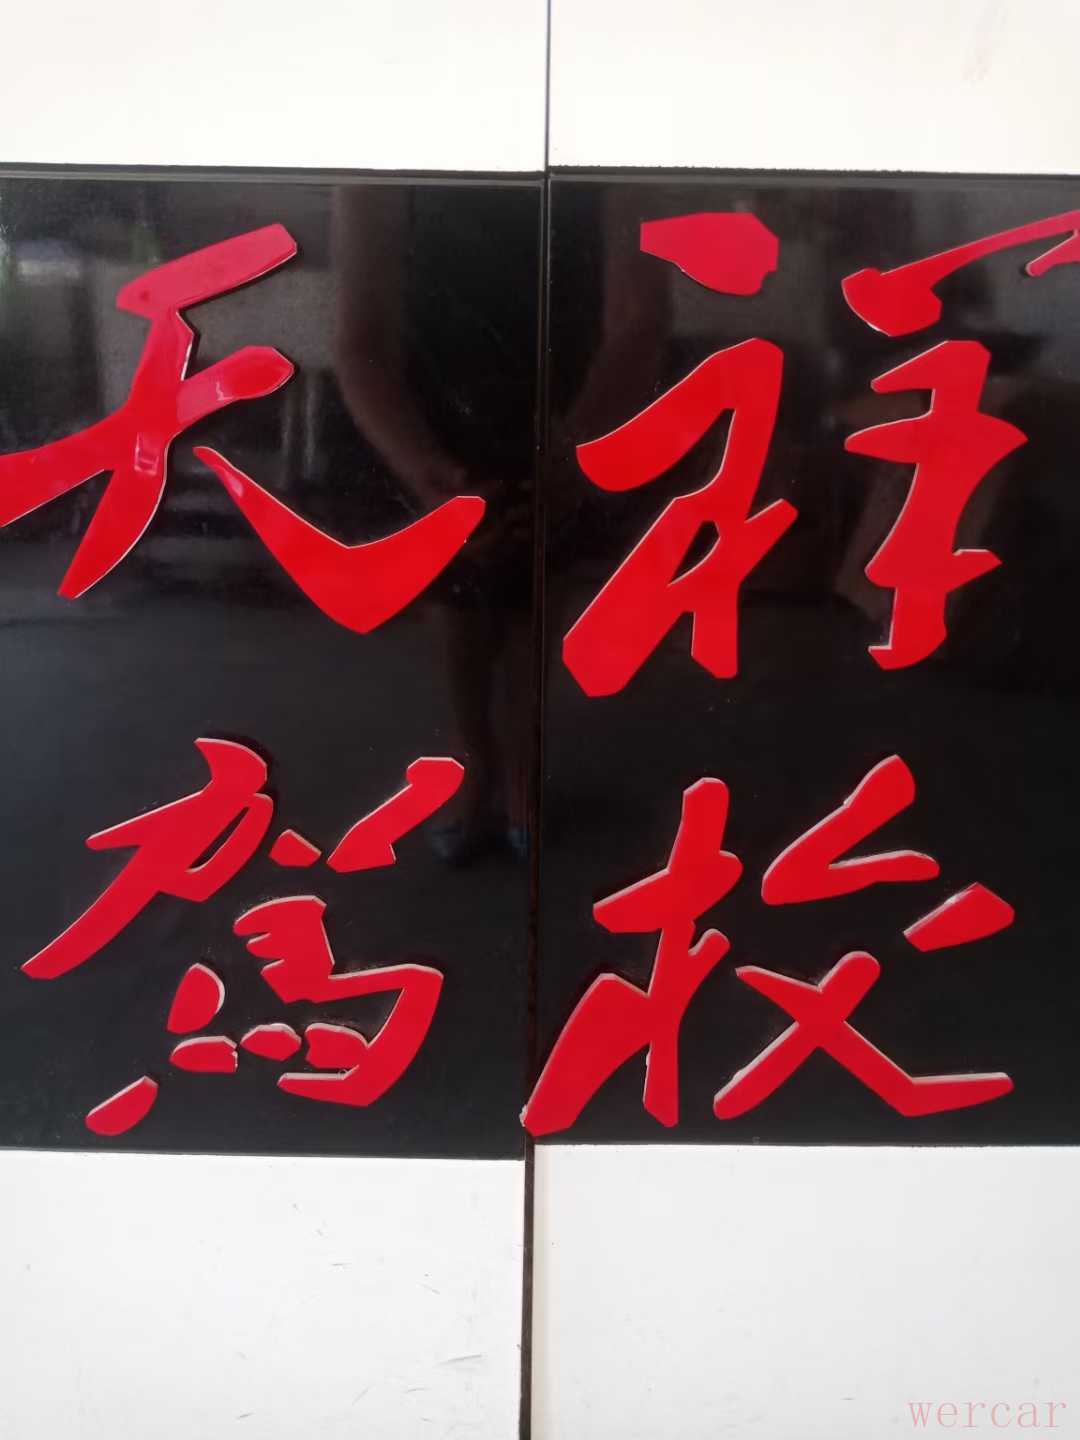 天祥
驾校
wercar